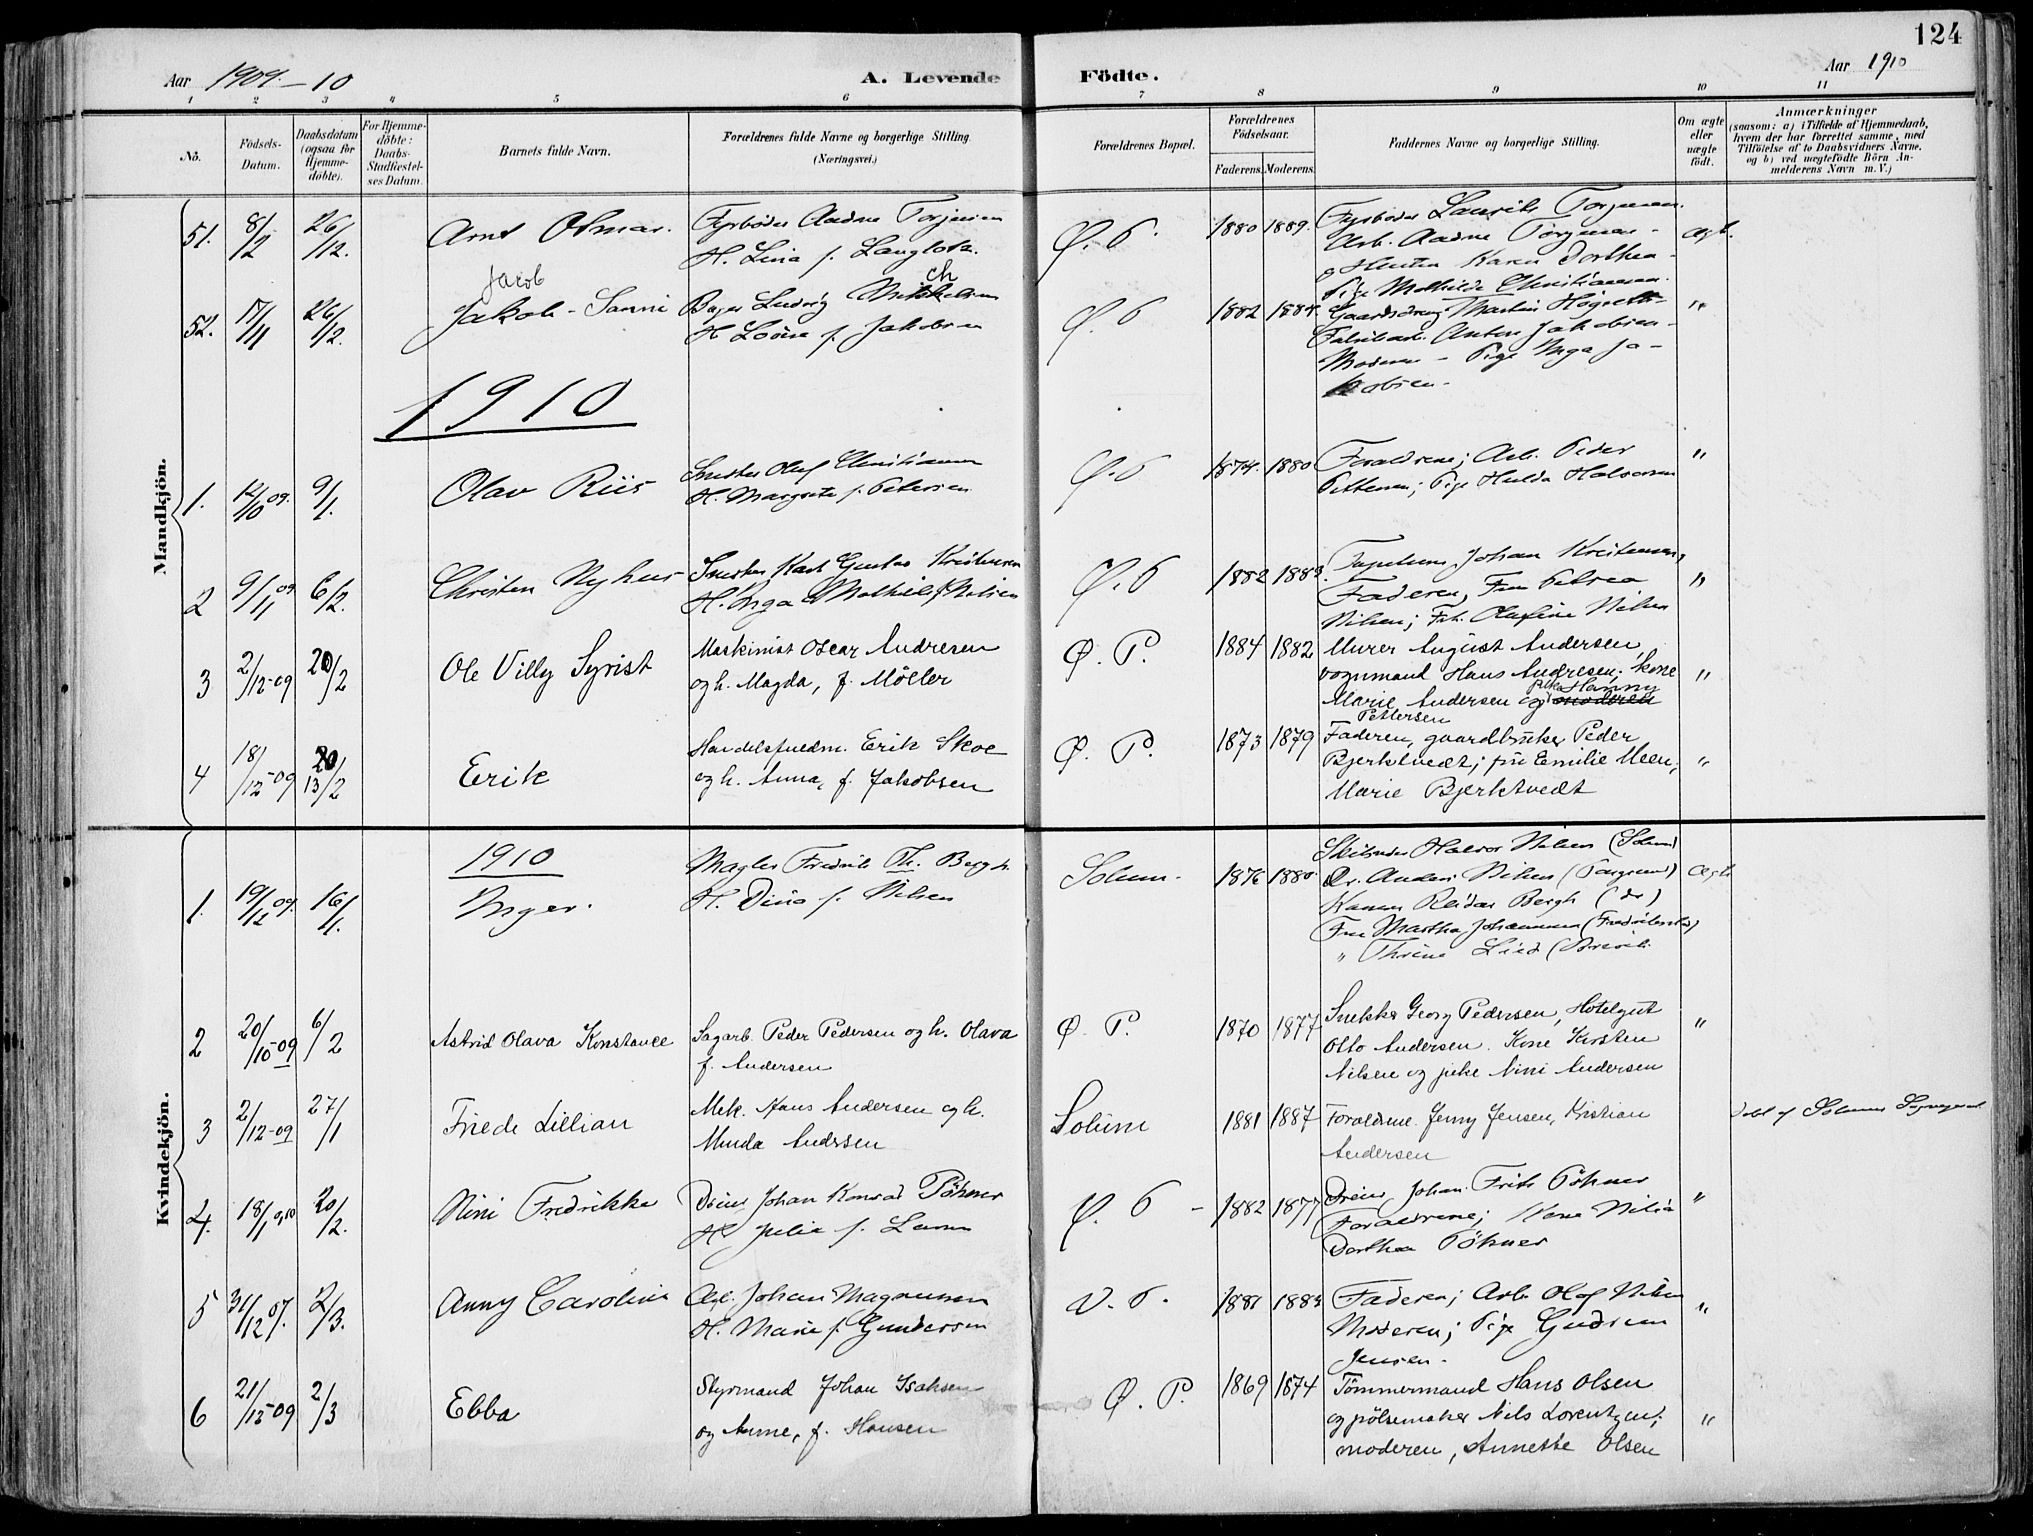 124
Aar 1909-10
A. Levende
Födte.
Aar 1910
1 2 3 4 5 6 7 8 9 10 11
No.
Födsels-
Datum.
Daabsdatum
(ogsaa for
Hjemme-
döbte).
For Hjemme-
döbte:
Daabs-
Stadfæstel-
ses Datum.
Barnets fulde Navn.
Forældrenes fulde Navne og borgerlige Stilling.
(Næringsvei.)
Forældrenes Bopæl.
Forældrenes
Födselsaar.
Faderens. Moderens.
Faddernes Navne og borgerlige Stilling.
Om ægte
eller
uægte
födt.
Anmærkninger
(saasom: a) i Tilfælde af Hjemmedaab,
hvem der har forrettet samme, med
Tilföielse af to Daabsvidners Navne,
og b) ved uægtefödte Börn An-
melderens Navn m. V.)
Mandkjön.
51. 8/12 26/12. Arnt Otmar. Fyrböder Aadne Torjusen
H. Lina f. Langlots.
Ø. P. 1880 1889. Fyrböder Laurits
Arb. Aadne
Karen Dorthea
Pige Mathilde Christiansen
Ægt.
52. 17/11 26/12. Jacob
Jakob - Sanni Bager Ludvig Mikkelsen
ch
H. Lovise f. Jakobsen
Ø. P. 1882 1884 Gaardsdreng Martin
Anton Jakobsen
Moderen - Pige Inga Ja-
kobsen - "
1910
1. 12/10 09. 9/1. Olav Riis Smeder Oluf Christiansen
H. Margrete f. Petersen
Ø. P. 1874. 1880 Forældrene; Arb. Peder
Pettersen; Pige Hulda Halvorsen "
2 9/11 09 6/2. Christen Nyhus Karl Gustav Kristensen
H. Inga Mathilde f. Nilsen
Ø. P. 1882 1883. Johan Kristensen,
Faderen, Fru Petrea
Nilsen; Frk. Olafine Nilsen "
3 2/12-09 20/2 Ole Villy Syrist Maskinist Oscar Andresen
og h. Magda, f. Möller
Ø. P. 1884 1882 Murer August Andersen,
vognmand Hans Andresen; kone
Marie Andersen og moderen
pike Hanny
Pettersen "
4 18/12-09 20
13/2 Erik Handelsfuldm. Erik Skoe
og h. Anna, f. Jakobsen
Ø. P. 1873 1879 Faderen, gaardbruker Peder
Bjerketvedt; fru Emilie Meen,
Marie Bjerketvedt "
Kvindekjön.
1910
1. 19/12 09. 16/1. Inger. Mægler Fredrik Th. Bergh.
H. Dina f. Nilsen
Solum - 1876 1880. Halvor Nilsen (Solum)
Dr. Anders Nilsen (Porsgrund)
Reidar Bergh (do)
Fru Martha Johannessen (Fredrikstad)
" Thrine Lied
Ægt.
2 20/10-09 6/2 Astrid Olava Konstance Sagarb. Peder Pedersen og h. Olava
f. Andersen
Ø. P. 1870 1877 Snekker Georg Pedersen, Hotelgut
Otto Andersen. Kone Kirsten
Nilsen og pike Nini Andersen "
3 2/12-09 27/1 Friede Lillian Mek. Hans Andersen og h.
Minda Andersen
Solum 1881 1887 Forældrene. Jenny Jensen, Kristian
Andersen
Döbt af Solums Sogneprest
4. 18/1 1910 20/2. Nini Fredrikke Dreier Johan Konrad Pöhner
H. Julie f. Larsen
Ø. P. - 1882 1877 Dreier Johan Frits Pöhner
Forældrene; Kone
Dorthea Pöhner "
5 31/12 07. 2/3. Anny Caroline Arb. Johan Magnussen
H. Marie f. Gundersen
V. P. 1881 1883 Faderen; Arb. Olaf Nilsen
Moderen; Pige Gudrun
Jensen. "
6 21/12-09 2/3 Ebba Styrmand Johan Isaksen
og Anne, f. Hansen
Ø. P. 1869 1874 Tömmermand Hans Olsen
og pölsemaker Nils Lorentzen;
moderen, Annette Olsen "